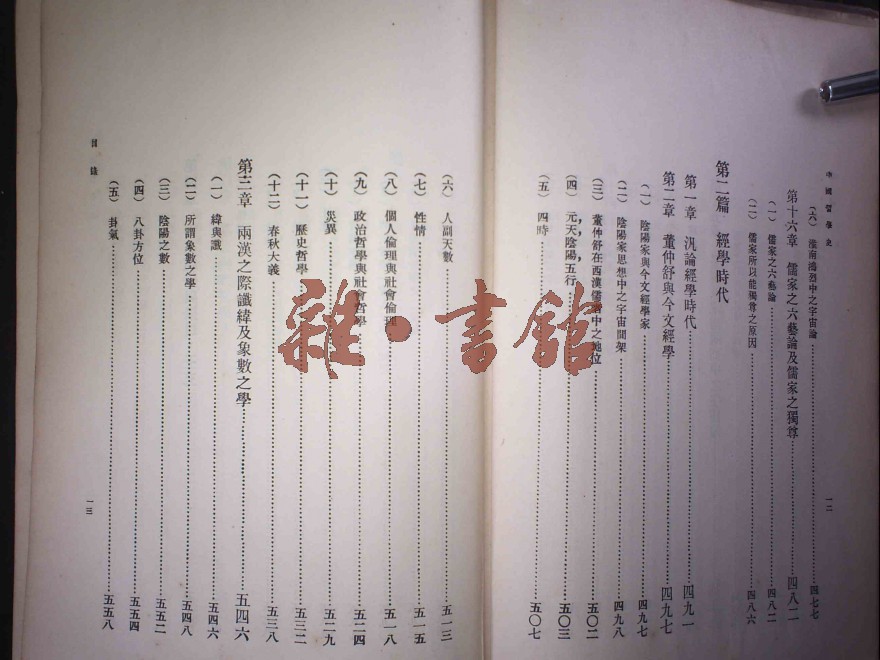 中國哲學史
(六) 淮南鴻烈中之宇宙論……四七七
第十六章 儒家之六藝論及儒家之獨尊……四八二
(一) 儒家之六藝論……四八二
(二) 儒家所以能獨尊之原因……四八六
第二篇 經學時代
第一章 汎論經學時代……四九一
第二章 董仲舒與今文經學……四九七
(一) 陰陽家與今文經學家……四九七
(二) 陰陽家思想中之宇宙間架……四九八
(三) 董仲舒在西漢儒者中之地位……五〇二
(四) 元,天,陰陽,五行……五〇三
(五) 四時……五〇七
一二
目錄
(六) 人副天數……五一三
(七) 性情……五一五
(八) 個人倫理與社會倫理……五一八
(九) 政治哲學與社會哲學……五二四
(十) 災異……五二九
(十一) 歷史哲學……五三二
(十二) 春秋大義……五三八
第三章 兩漢之際讖緯及象數之學……五四六
(一) 緯與讖……五四六
(二) 所謂象數之學……五四八
(三) 陰陽之數……五五二
(四) 八卦方位……五五四
(五) 卦氣……五五八
一三
雜·書館